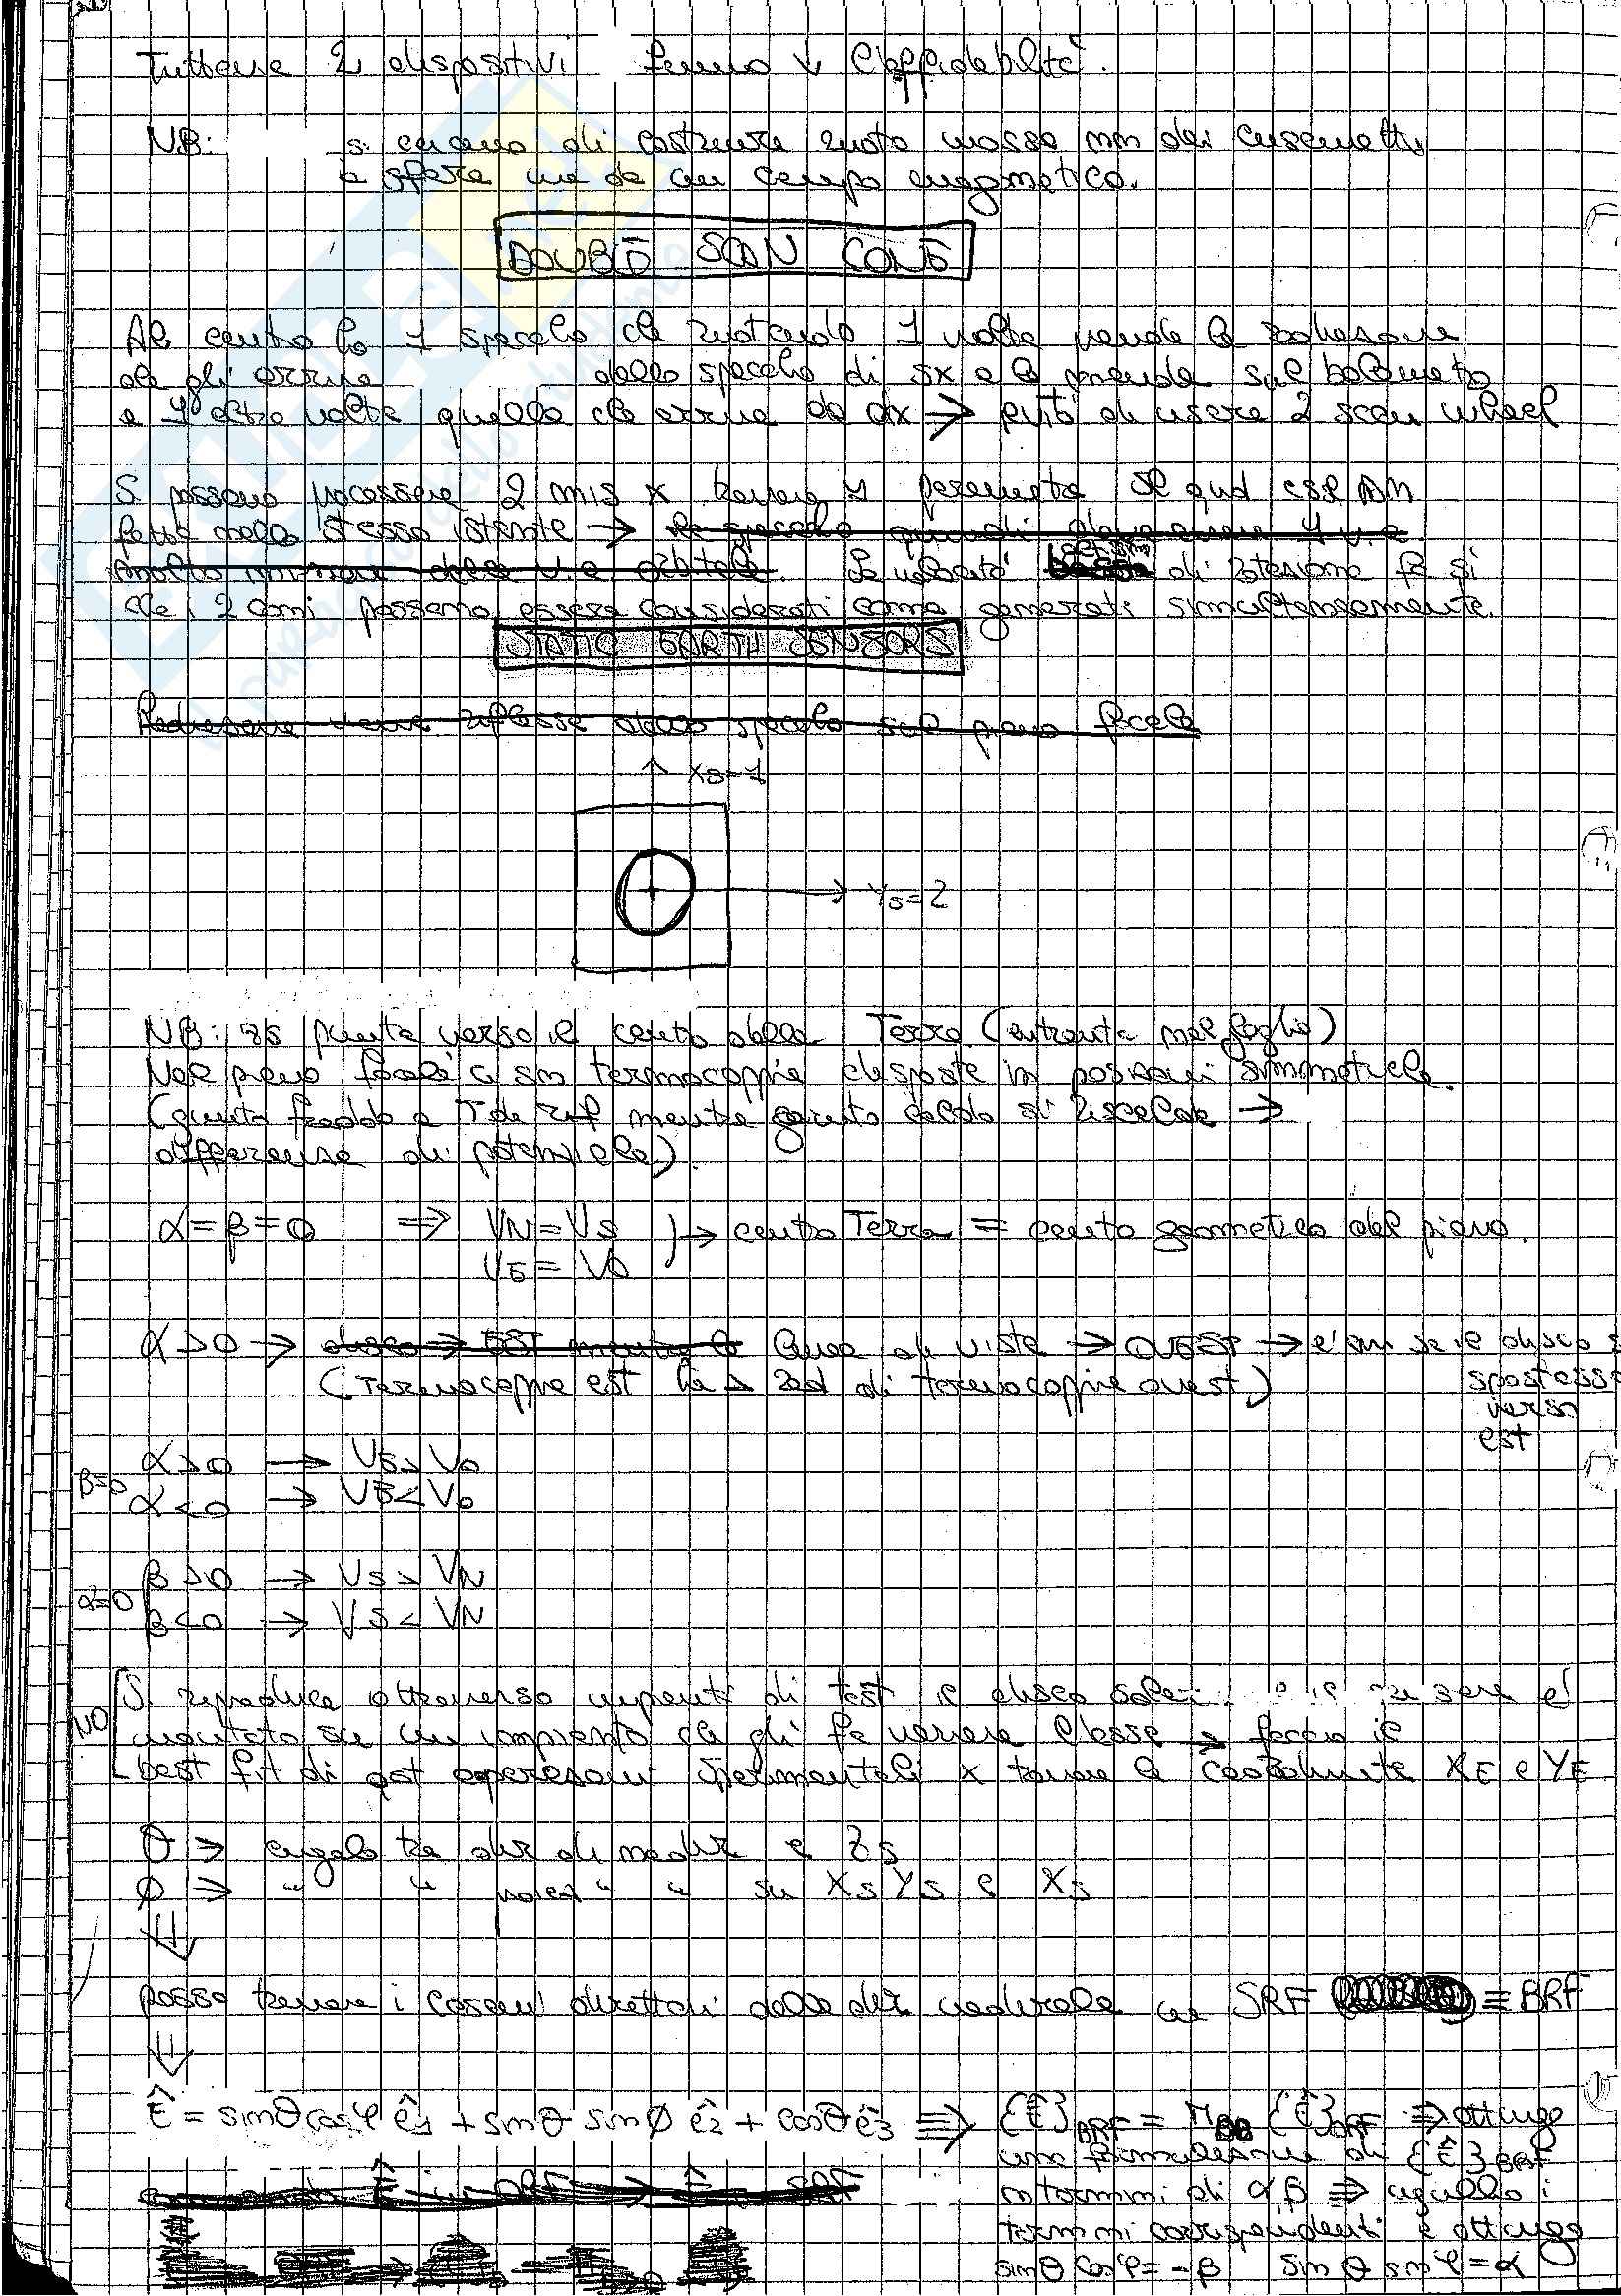 Tuttavia 2 dispositivi fanno ↓ l'affidabilità.
NB: si cercano di costruire ruote mosse nn dai cuscinetti
a sfera ma da un campo magnetico.
DOUBLE SCAN CONE
Al centro ho 1 specchio che ruotando 1 volta prende la radiazione
che gli arriva dallo specchio di sx e la manda sul bolometro
e 1 altra volta quella che arriva da dx → evito di usare 2 scan wheel
Si possono processare 2 mis x trovare 1 parametro se qnd esse nn
fatte nello stesso istante → lo specchio quindi deve avere 1 v.a.
molto minore della v.a orbitale. La velocità di rotazione fa sì
che i 2 coni possano essere considerati come generati simultaneamente.
STATIC EARTH SENSORS
Radiazione viene riflessa dallo specchio sul piano focale
↑ XS=1
YS=2
NB: zs punta verso il centro della Terra (entrante nel foglio)
Nel piano focale ci sn termocoppie disposte in posizioni simmetriche.
(giunto freddo a T di rif mentre giunto caldo si riscalda →
differenza di potenziale)
α=β=0 ⇒ VN=VS → centro Terra = centro geometrico del piano.
VE=VO
α>0 → linea di vista → OVEST → è cm se il disco si
(Termocoppie est ha > rad di termocoppie ovest) spostasse
verso
est
β=0 α>0 → VE>VO
α<0 → VE<VO
α=0 β>0 → VS>VN
β<0 → VS<VN
Si riproduce attraverso impianti di test il disco
NO montato su un impianto che gli fa variare l'asse → faccio il
best fit di qst operazioni sperimentali x trovare le coordinate XE e YE
θ ⇒ angolo tra dir di nadir e ZS
φ ⇒ " " proiez " " su XS YS e XS
⇓
posso trovare i coseni direttori della dir nadirale in SRF ≡ BRF
⇓
Ê = sinθ cosφ ê1 + sinθ sinφ ê2 + cosθ ê3 ⇒ {Ê}BRF = MBO {Ê}ORF ⇒ ottengo
una formulazione di {Ê}BRF
in termini di α,β ⇒ uguaglio i
termini corrispondenti e ottengo
sinθ cosφ = -β sinθ sinφ = α